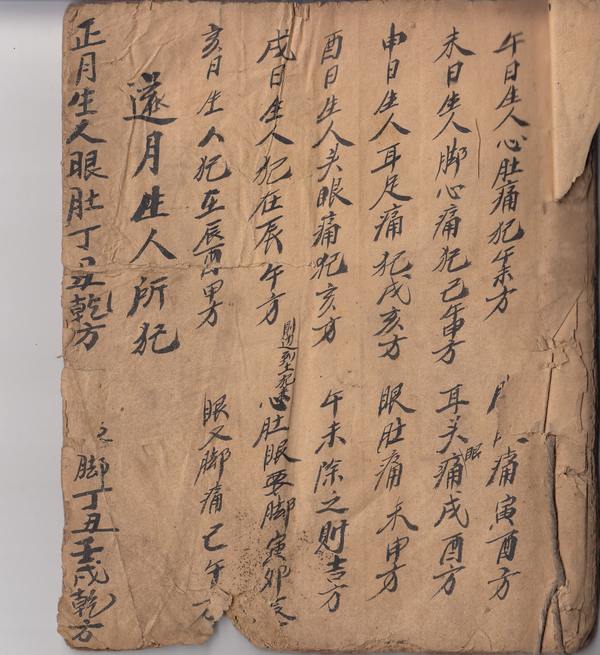 午日生人心肚痛犯午未方 痛寅酉方
未日生人脚心痛犯己午申方 耳头眼痛戌酉方
申日生人耳足痛犯戌亥方 眼肚痛未申方
酉日生人头眼痛犯亥方 午未除之則吉方
戌日生人犯在辰午方 心肚眼要脚寅卯
亥月生人犯在辰酉甲方 眼又脚痛己午
逐月生人所犯
正月生人眼肚丁丑乾方 之脚丁丑壬戌乾方